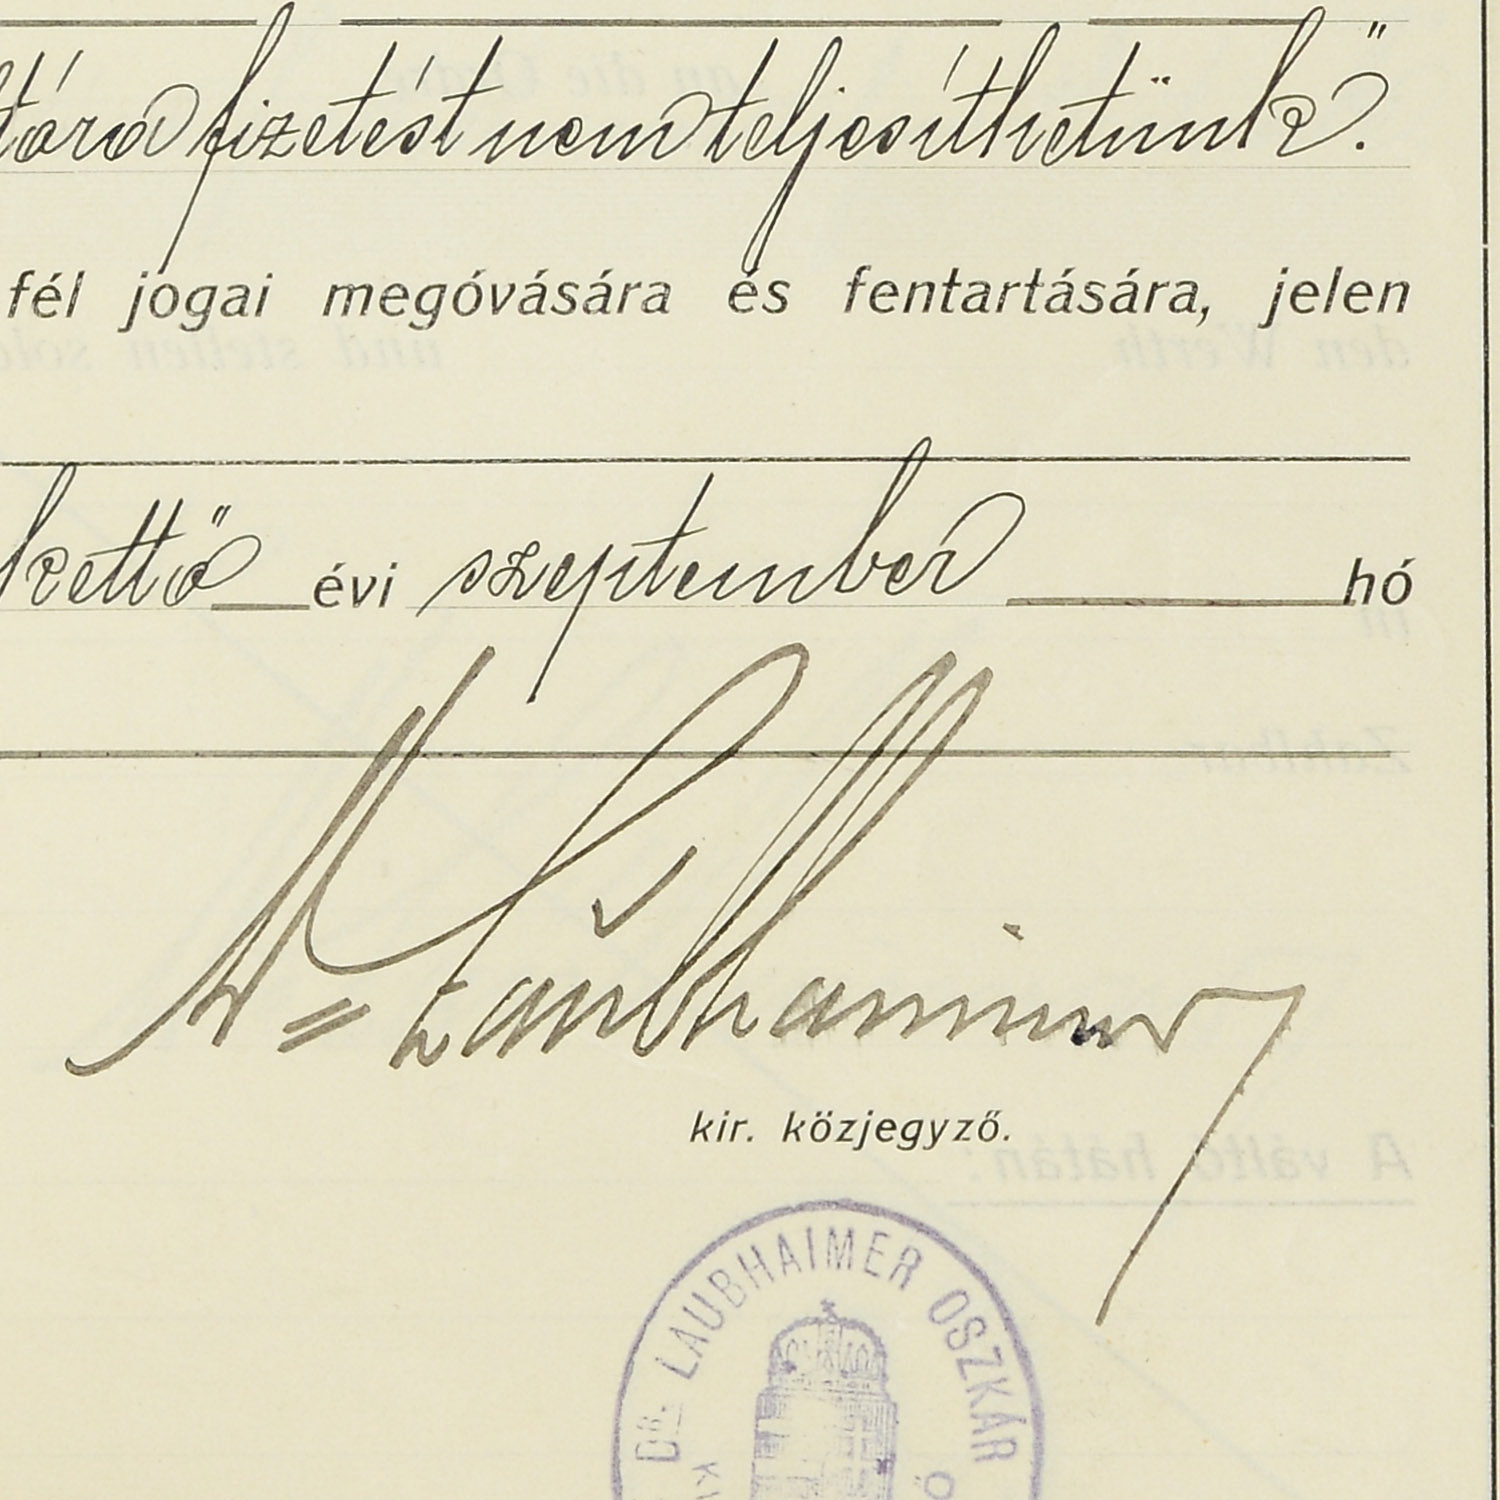 fizetést nem teljesíthetünk."
fél jogai megóvására és fentartására, jelen
kettő évi szeptember hó
Dr. Laubhaimer
kir. közjegyző.
DR. LAUBHAIMER OSZKÁR